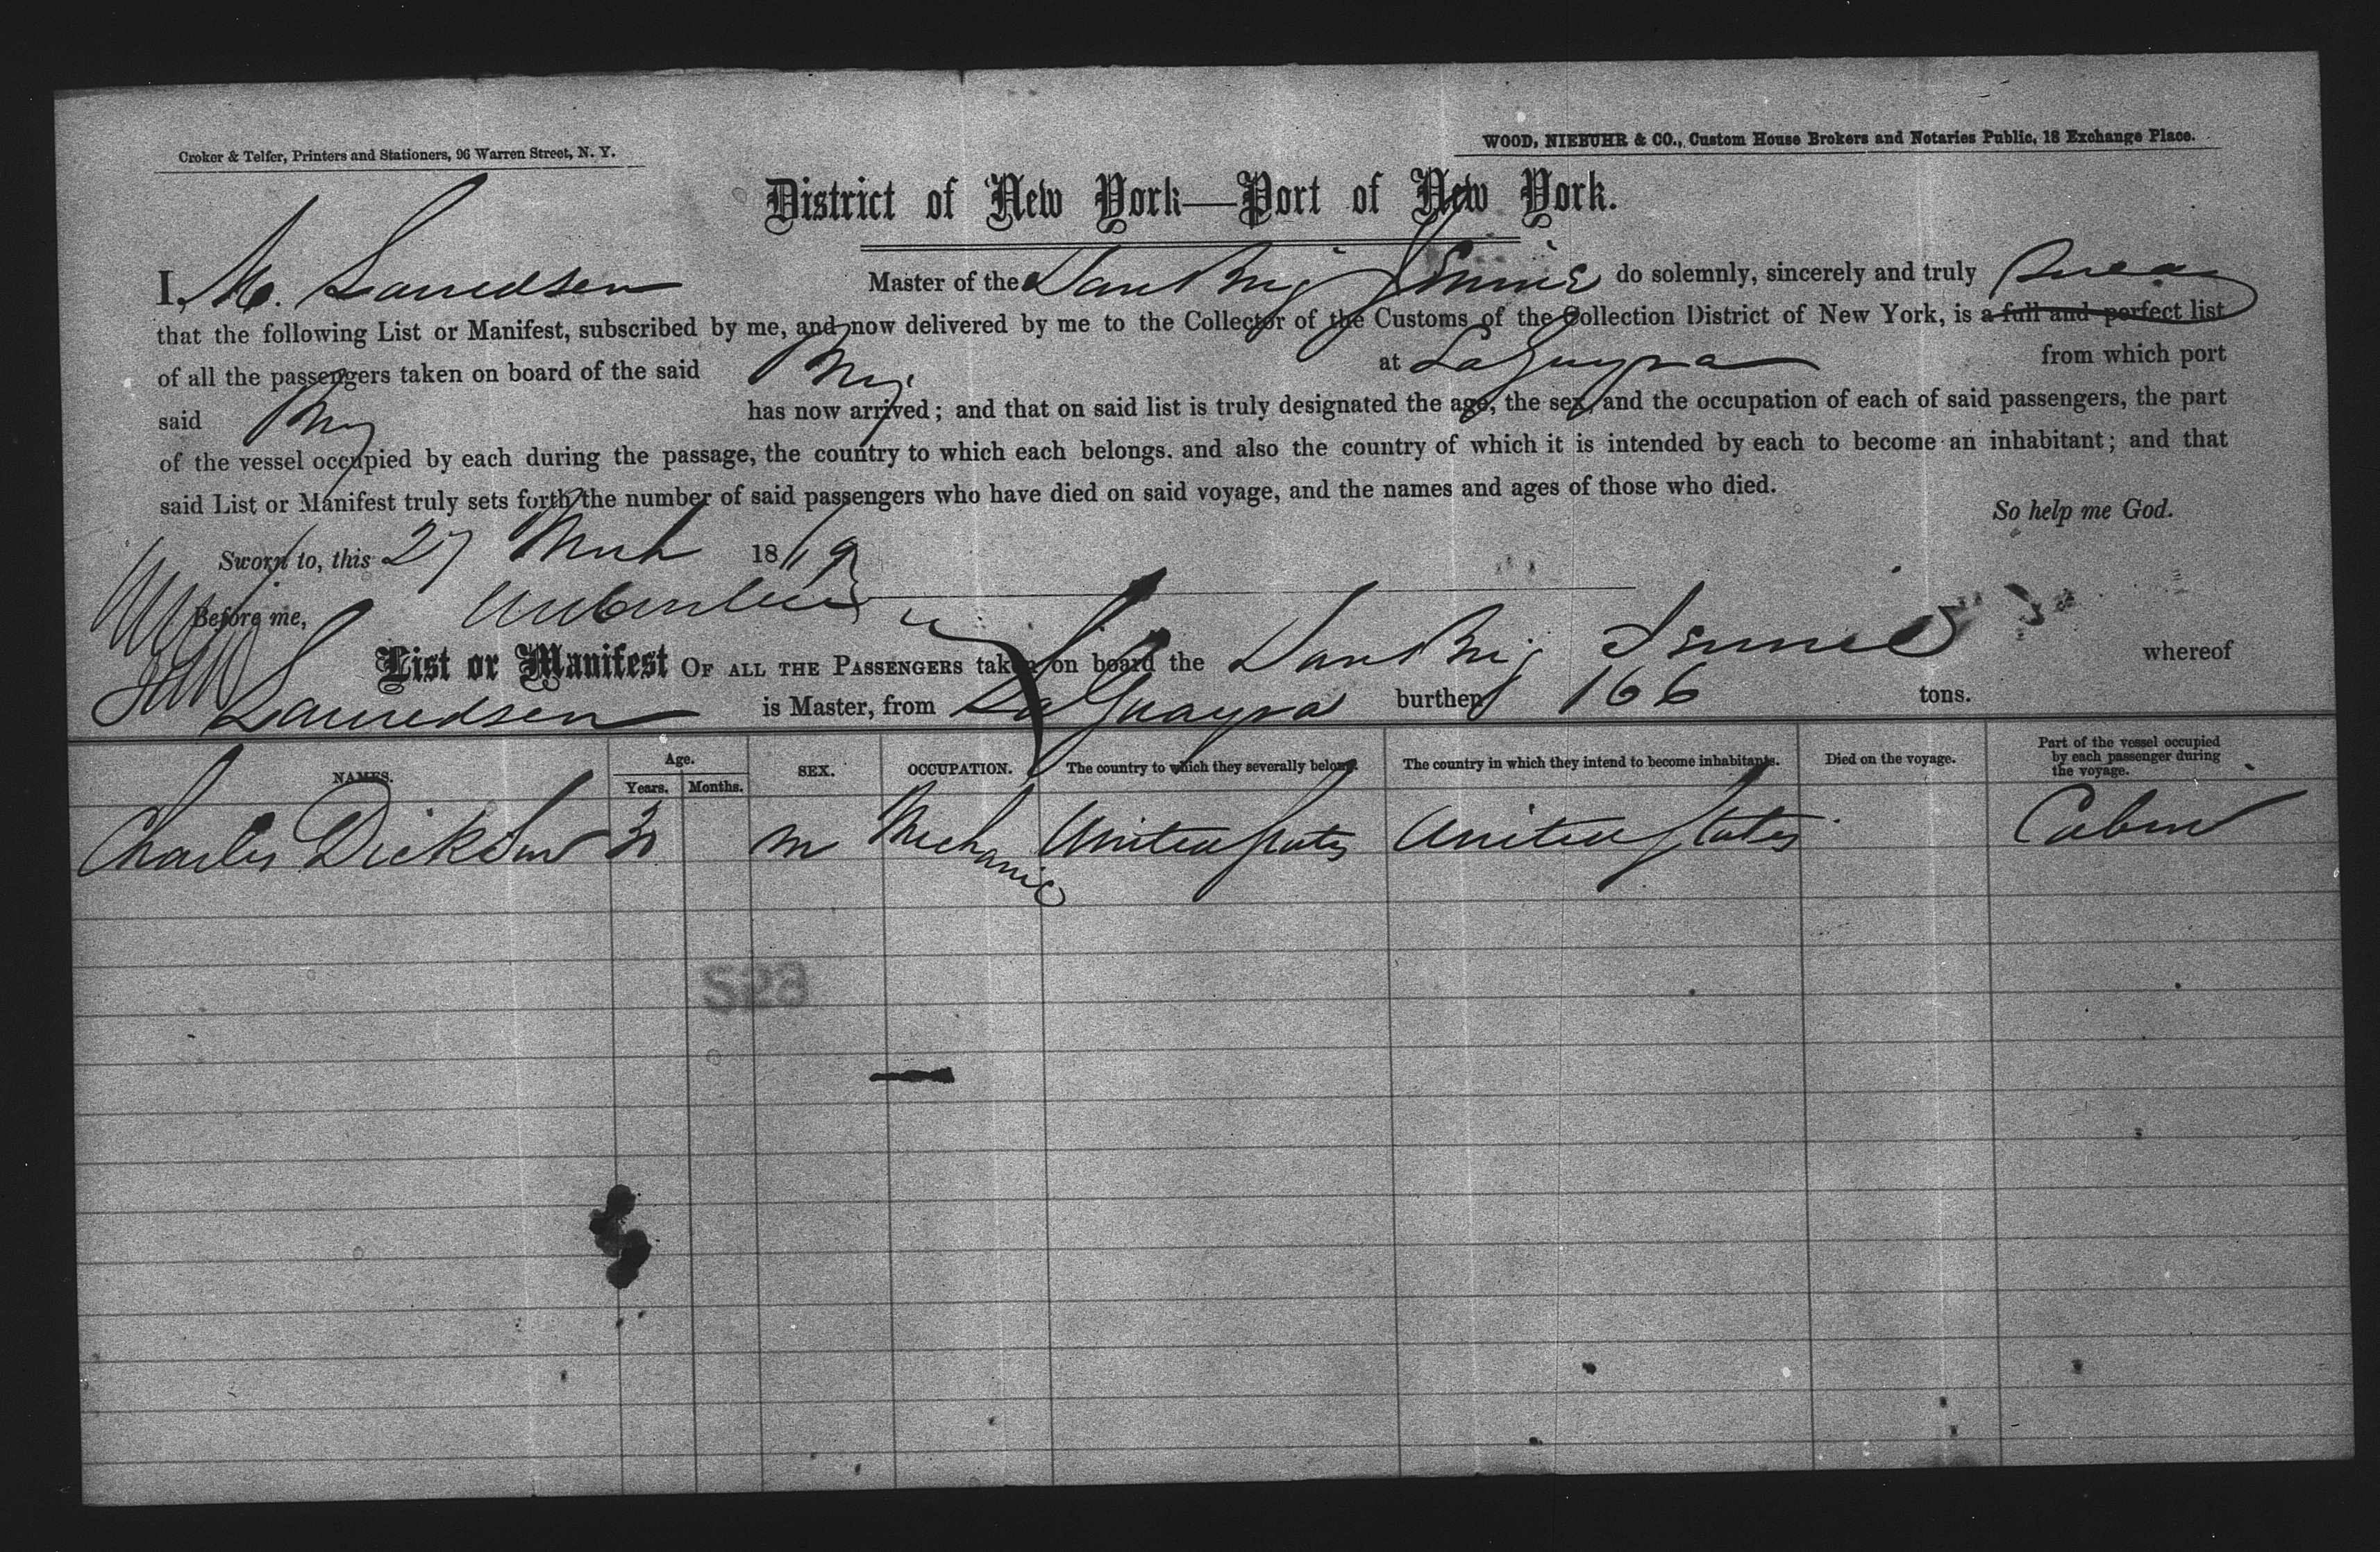 Croker & Telfer, Printers and Stationers, 96 Warren Street, N. Y.
WOOD, NIEBUHR & CO., Custom House Brokers and Notaries Public, 18 Exchange Place.
District of New York—Port of New York.
I, M. Lauridsen Master of the Dan Brig do solemnly, sincerely and truly swear
that the following List or Manifest, subscribed by me, and now delivered by me to the Collector of the Customs of the Collection District of New York, is a full and perfect list
of all the passengers taken on board of the said Brig at LaGuayra from which port
said Brig has now arrived; and that on said list is truly designated the age, the sex, and the occupation of each of said passengers, the part
of the vessel occupied by each during the passage, the country to which each belongs. and also the country of which it is intended by each to become an inhabitant; and that
said List or Manifest truly sets forth the number of said passengers who have died on said voyage, and the names and ages of those who died.
So help me God.
Sworn to, this 27 March 18
Before me,
List or Manifest OF ALL THE PASSENGERS taken on board the Dan Brig whereof
Lauridsen is Master, from LaGuayra burthen 166 tons.
NAMES. Age. Years. Months. SEX. OCCUPATION. The country to which they severally belong. The country in which they intend to become inhabitants. Died on the voyage. Part of the vessel occupied by each passenger during the voyage.
Charles Dickson m Mechanic United States United States Cabin